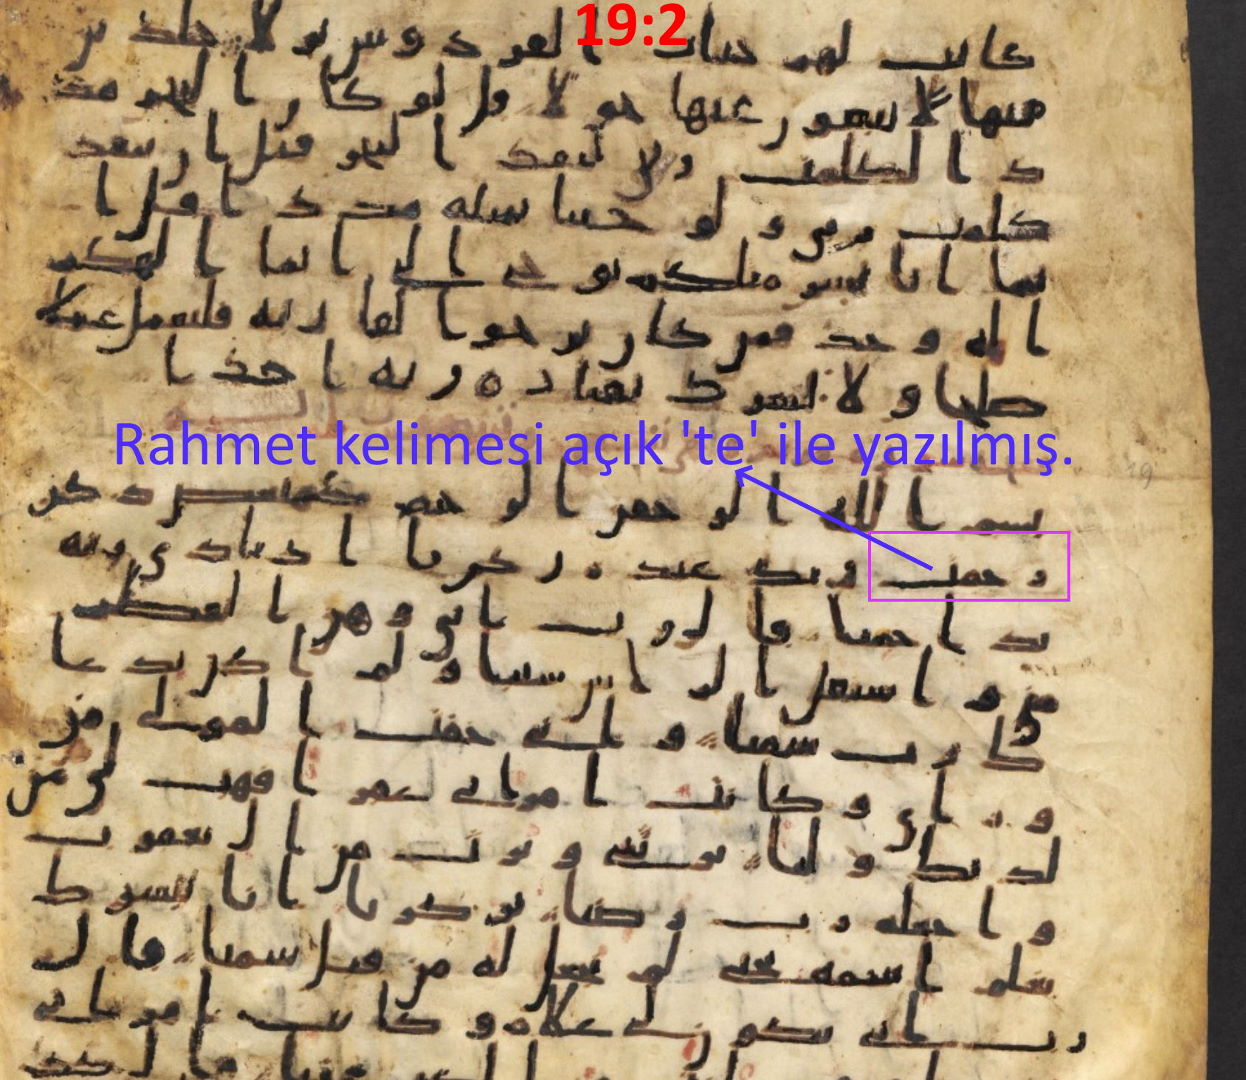 19:2
كانت لهم جنات الفردوس نزلا خلدين
فيها لا يبغون عنها حولا قل لو كان البحر مد
دا لكلمت ربي لنفد البحر قبل ان تنفد
كلمت ربي ولو جئنا بمثله مددا قل ا
نما انا بشر مثلكم يوحى الي انما الهكم
اله وحد فمن كان يرجوا لقا ربه فليعمل عملا
صلحا ولا يشرك بعبادة ربه احدا
Rahmet kelimesi açık 'te' ile yazılmış.
19
بسم الله الرحمن الرحيم كهيعص ذكر
رحمت ربك عبده زكريا اذ نادى ربه
ندا خفيا قال رب اني وهن العظم
مني واشتعل الراس شيبا ولم اكن بدعا
ك رب شقيا واني خفت المولي من
وراي وكانت امراتي عقرا فهب لي من
لدنك وليا يرثني ويرث من ال يعقوب
واجعله رب رضيا يزكريا انا نبشرك
بغلم اسمه يحيى لم نجعل له من قبل سميا قال
رب انى يكون لي غلم وكانت امراتي